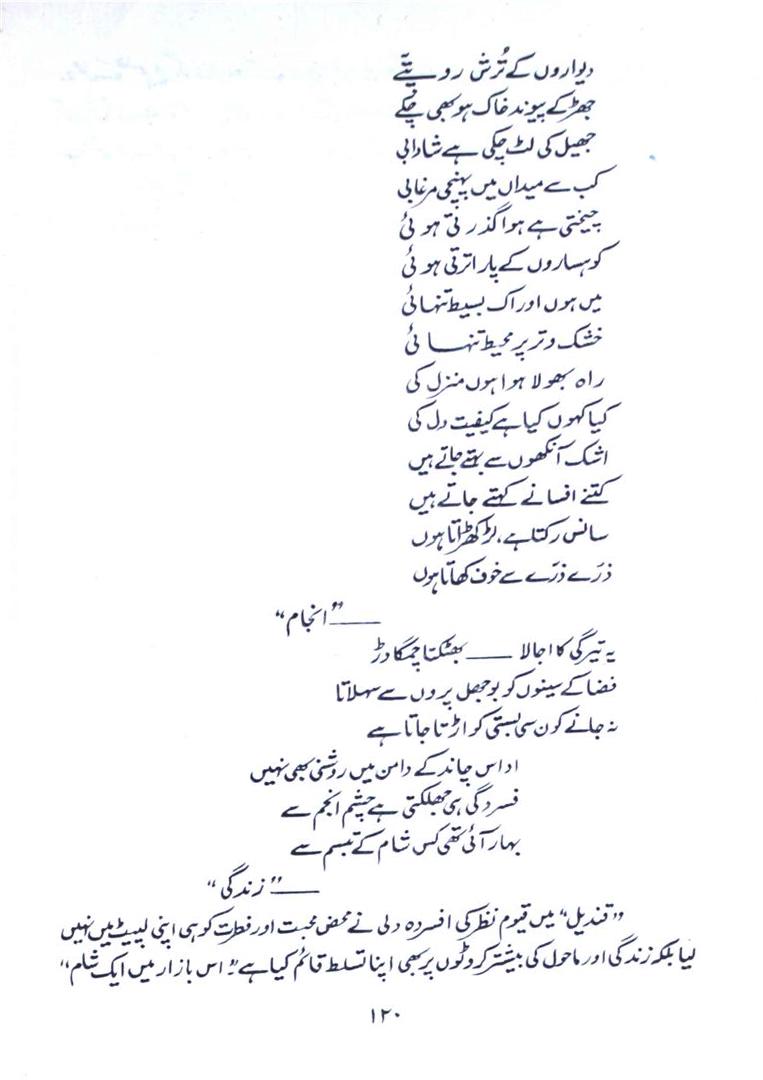 دیواروں کے تُرش رویّتے
جھڑ کے پیوند خاک ہو بھی چکے
جھیل کی لٹ چکی ہے شادابی
کب سے میداں میں پہنچی مرغابی
چیختی ہے ہوا گذرتی ہوئی
کوہساروں کے پار اترتی ہوئی
میں ہوں اور اک بسیط تنہائی
خشک و تر پر محیط تنہائی
راہ بھولا ہوا ہوں منزل کی
کیا کہوں کیا ہے کیفیت دل کی
اشک آنکھوں سے بہتے جاتے ہیں
کتنے افسانے کہتے جاتے ہیں
سانس رکتا ہے، لڑکھڑاتا ہوں
ذرّے ذرّے سے خوف کھاتا ہوں
——"انجام"
یہ تیرگی کا اجالا —— بھٹکتا چمگادڑ
فضا کے سینوں کو بوجھل پروں سے سہلاتا
نہ جانے کون سی بستی کو اڑتا جاتا ہے
اداس چاند کے دامن میں روشنی بھی نہیں
فسردگی ہی جھلکتی ہے چشم انجم سے
بہار آئی تھی کس شام کے تبسم سے
——"زندگی"
"قندیل" میں قیوم نظر کی افسردہ دلی نے محض محبت اور فطرت کو ہی اپنی لپیٹ میں نہیں
لیا بلکہ زندگی اور ماحول کی بیشتر کروٹوں پر بھی اپنا تسلط قائم کیا ہے۔ "اس بازار میں ایک شام"
۱۲۰